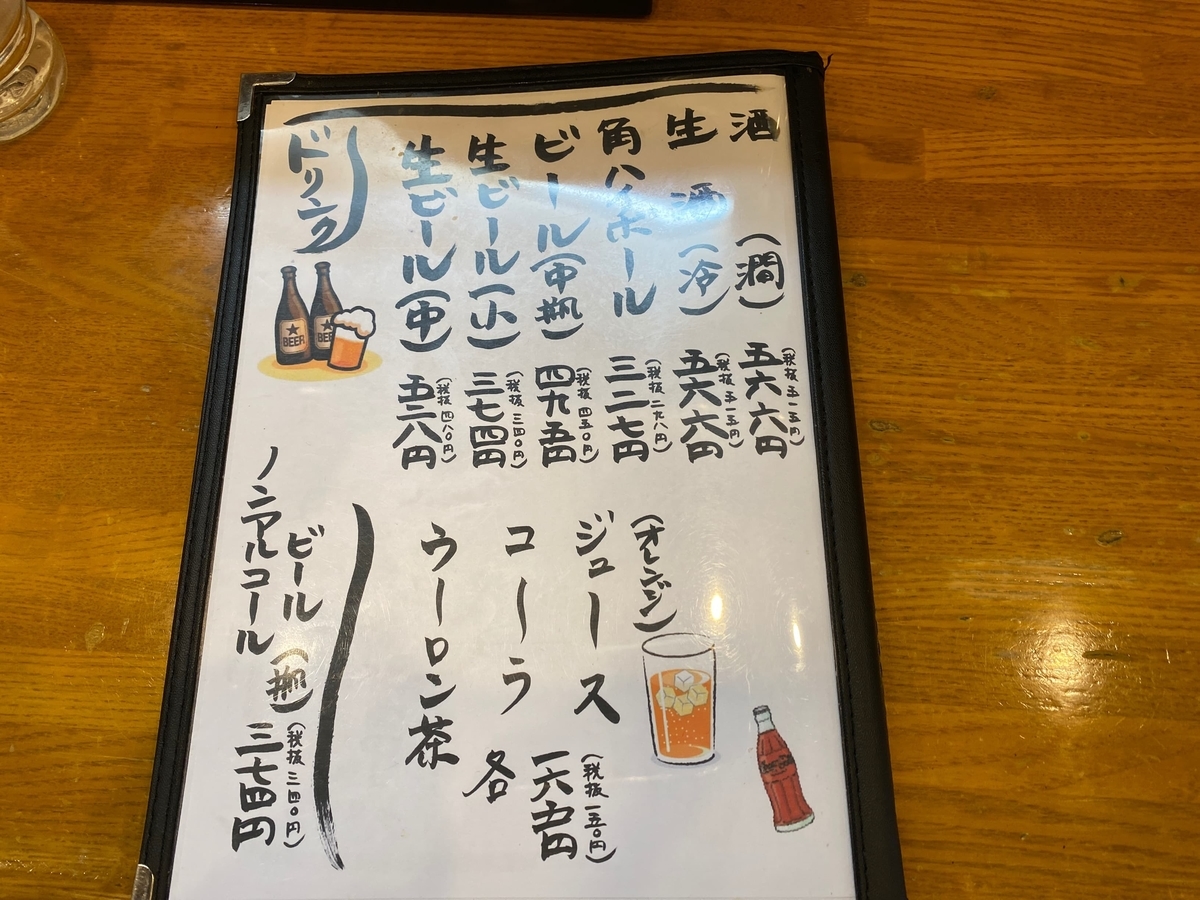 酒(燗) 五六六円(税抜 五一五円)
生酒(冷) 五六六円(税抜 五一五円)
角ハイボール 三二七円(税抜 二九八円)
ビール(中瓶) 四九五円(税抜 四五〇円)
生ビール(小) 三七四円(税抜 三四〇円)
生ビール(中) 五二八円(税抜 四八〇円)
ドリンク
BEER
BEE
(オレンジ)
ジュース
コーラ
ウーロン茶
各 一六五円(税抜 一五〇円)
ビール(瓶)
ノンアルコール
三七四円(税抜 三四〇円)